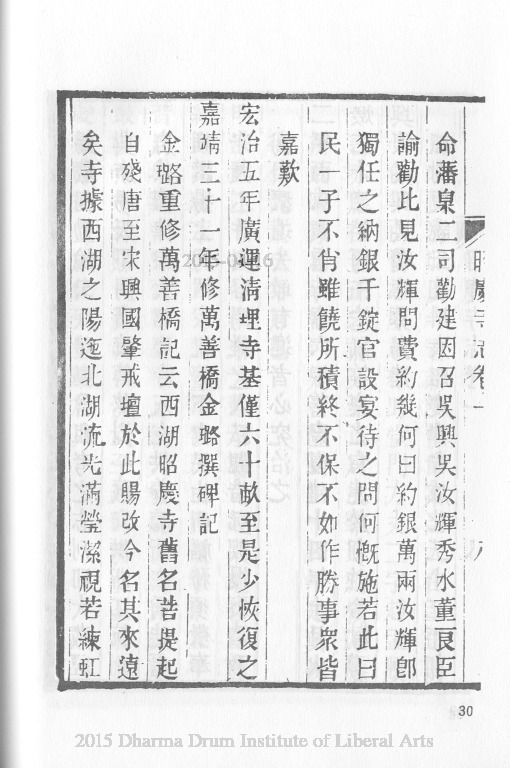 昭慶寺志卷一 八
命藩臬二司勸建因召吳興吳汝輝秀水董良臣
諭勸比見汝輝問費約幾何曰約銀萬兩汝輝卽
獨任之納銀千錠官設宴待之問何慨施若此曰
民一子不肖雖饒所積終不保不如作勝事衆皆
嘉歎
宏治五年廣運淸埋寺基僅六十畝至是少恢復之
嘉靖三十一年修萬善橋金璐撰碑記
金璐重修萬善橋記云西湖昭慶寺舊名菩提起
自殘唐至宋興國肇戒壇於此賜改今名其來遠
矣寺據西湖之陽迤北湖流光滿瑩潔視若練虹
30
2015 Dharma Drum Institute of Liberal Arts